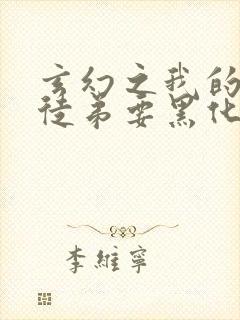 玄幻之我的
徒弟要黑化
李維寧